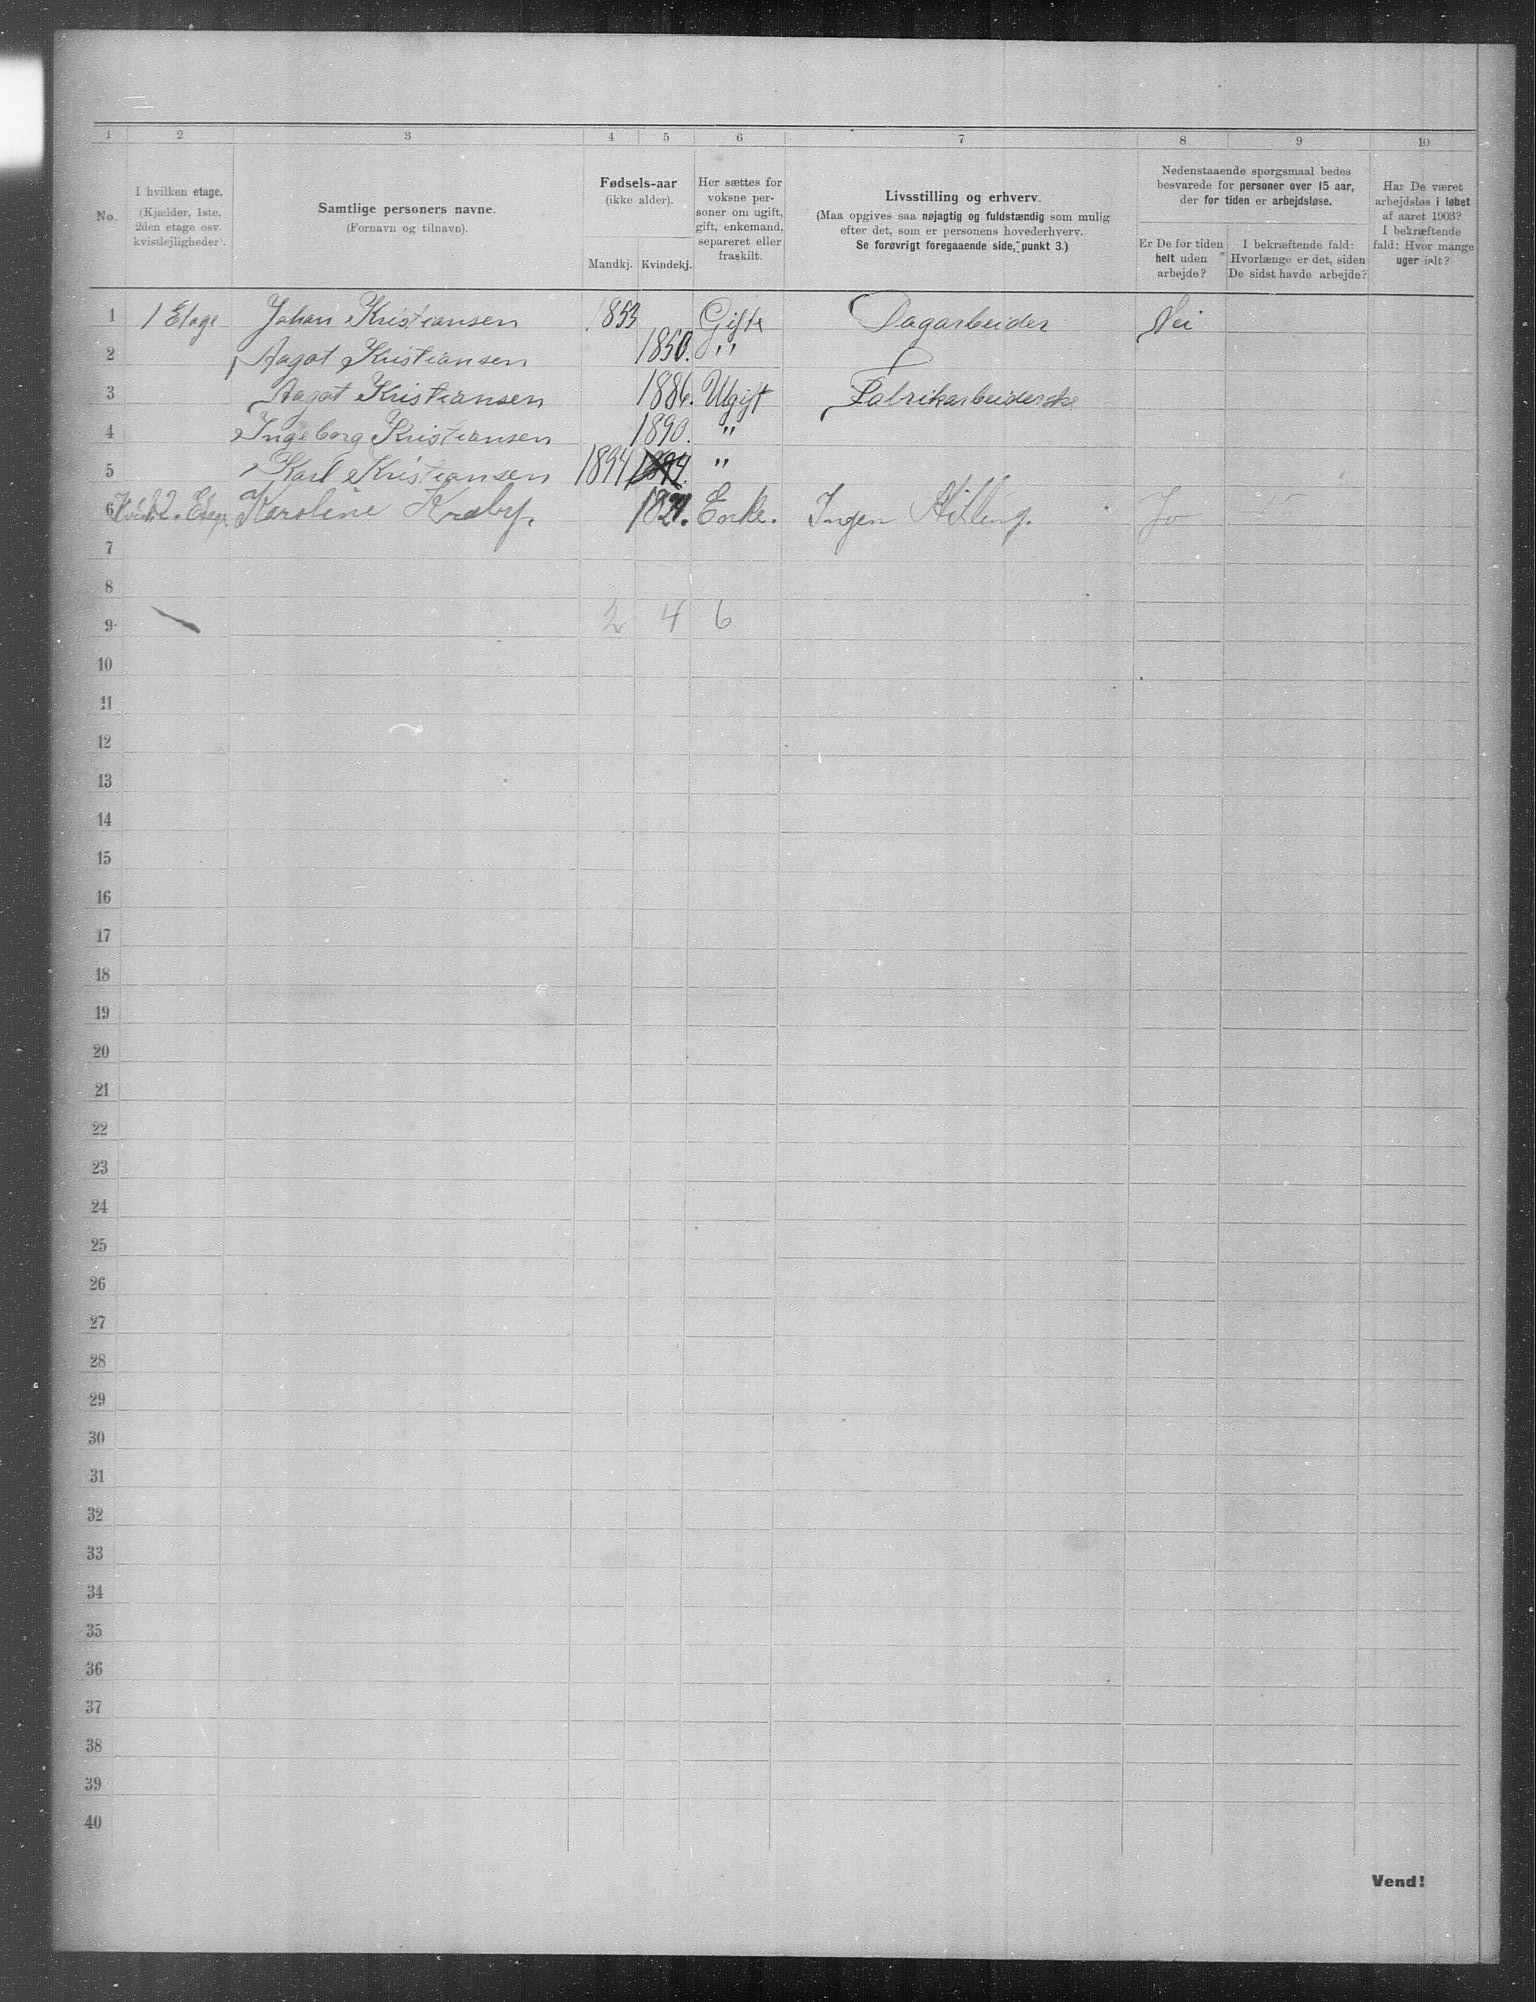 1 2 3 4 5 6 7 8 9 10
No.
I hvilken etage.
(Kjælder, 1ste,
2den etage osv.
kvistlejligheder).
Samtlige personers navne.
(Fornavn og tilnavn).
Fødsels-aar
(ikke alder).
Mandkj. Kvindekj.
Her sættes for
voksne per-
soner om ugift,
gift, enkemand,
separeret eller
fraskilt.
Livsstilling og erhverv.
(Maa opgives saa nøjagtig og fuldstændig som mulig
efter det, som er personens hovederhverv.
Se forøvrigt foregaaende side, punkt 3.)
Nedenstaaende spørgsmaal bedes
besvarede for personer over 15 aar,
der for tiden er arbejdsløse.
Er De for tiden
helt uden
arbejde?
I bekræftende fald:
Hvorlænge er det, siden
De sidst havde arbejde?
Har De været
arbejdsløs i løbet
af aaret 1903?
I bekræftende
fald: Hvor mange
uger ialt?
1 1 Etage Johan Kristiansen 1853 Gift Dagarbeider Nei
2 Aagot Kristiansen 1850. "
3 Aagot Kristiansen 1886. Ugift Fabrikarbeiderske
4 Ingeborg Kristiansen 1890. "
5 Karl Kristiansen 1894 1894. "
6 2. Etage Karoline Kraby. 1821. Enke. Ingen Stilling. Ja
7
8
9 2 4 6
10
11
12
13
14
15
16
17
18
19
20
21
22
23
24
25
26
27
28
29
30
31
32
33
34
35
36
37
38
39
40
Vend!